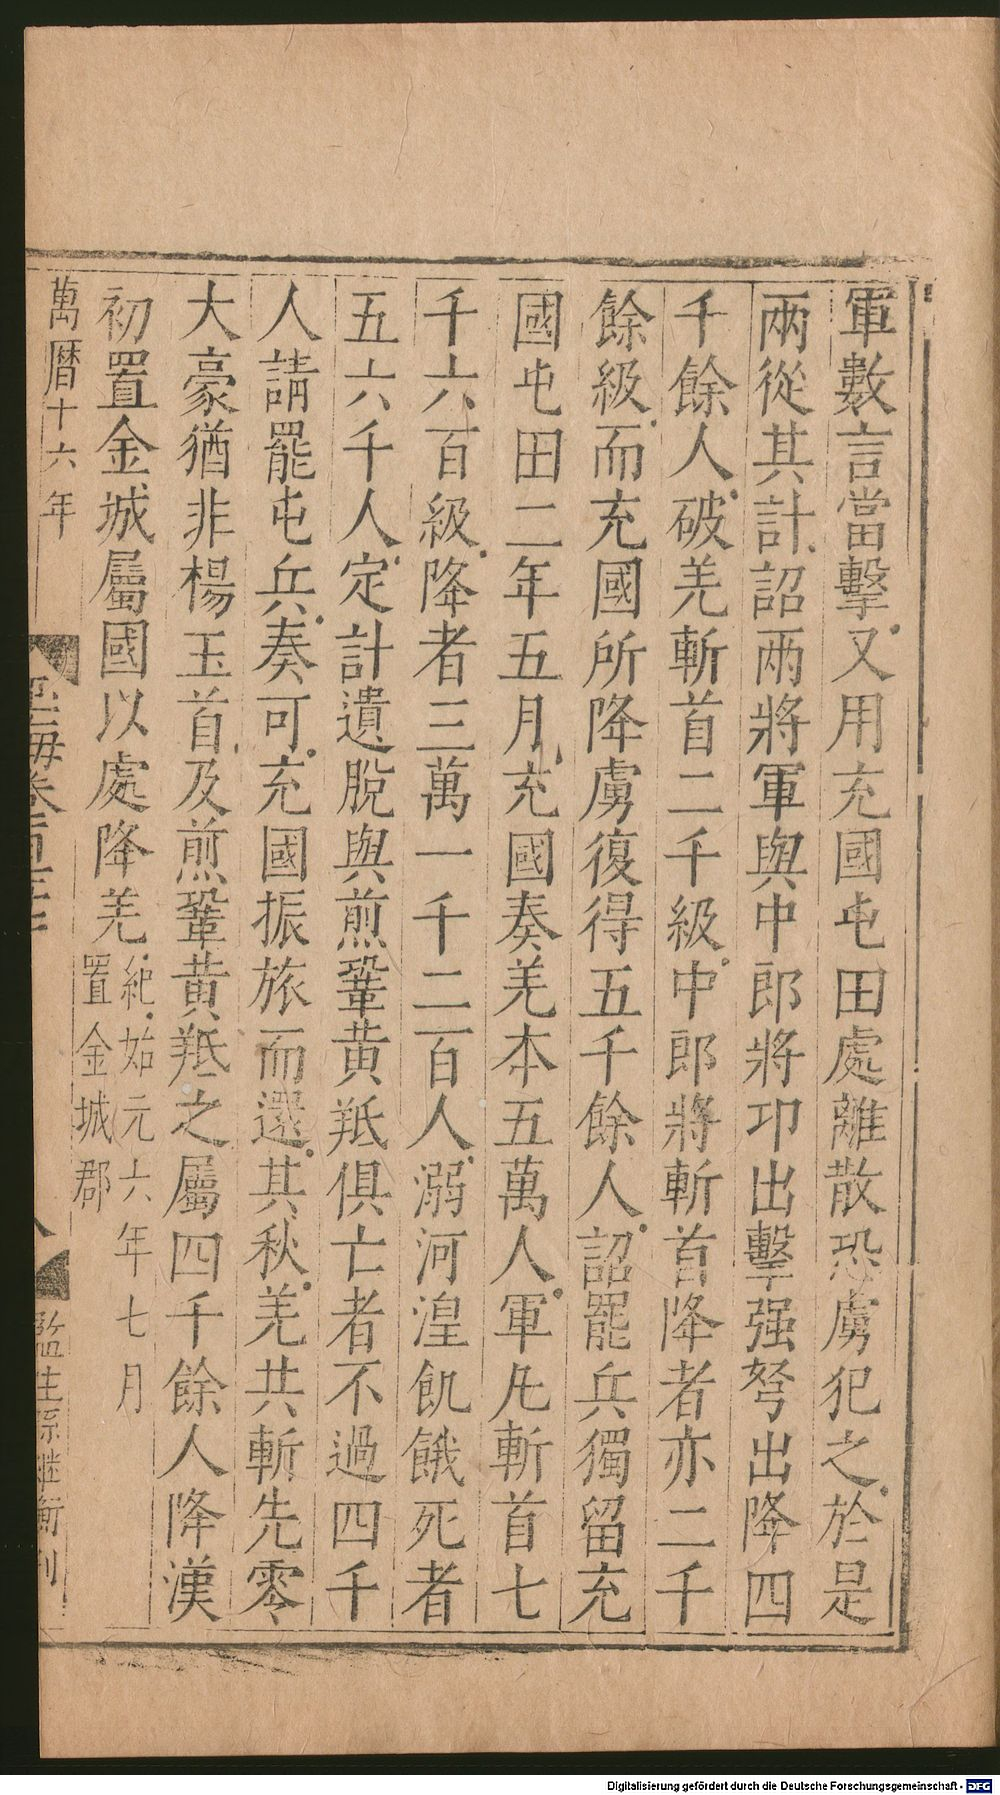 軍數言當擊又用充國屯田處離散恐虜犯之於是
兩從其計詔兩將軍與中郎將卬出擊强弩出降四
千餘人破羌斬首二千級中郎將斬首降者亦二千
餘級而充國所降虜復得五千餘人詔罷兵獨留充
國屯田二年五月充國奏羌本五萬人軍凡斬首七
千六百級降者三萬一千二百人溺河湟飢餓死者
五六千人定計遺脫與煎鞏黃羝俱亡者不過四千
人請罷屯兵奏可充國振旅而還其秋羌共斬先零
大豪猶非楊玉首及煎鞏黃羝之屬四千餘人降漢
初置金城屬國以處降羌
紀始元六年七月
置金城郡
萬曆十六年
玉海卷
監生孫継衡刊
Digitalisierung gefördert durch die Deutsche Forschungsgemeinschaft - DFG